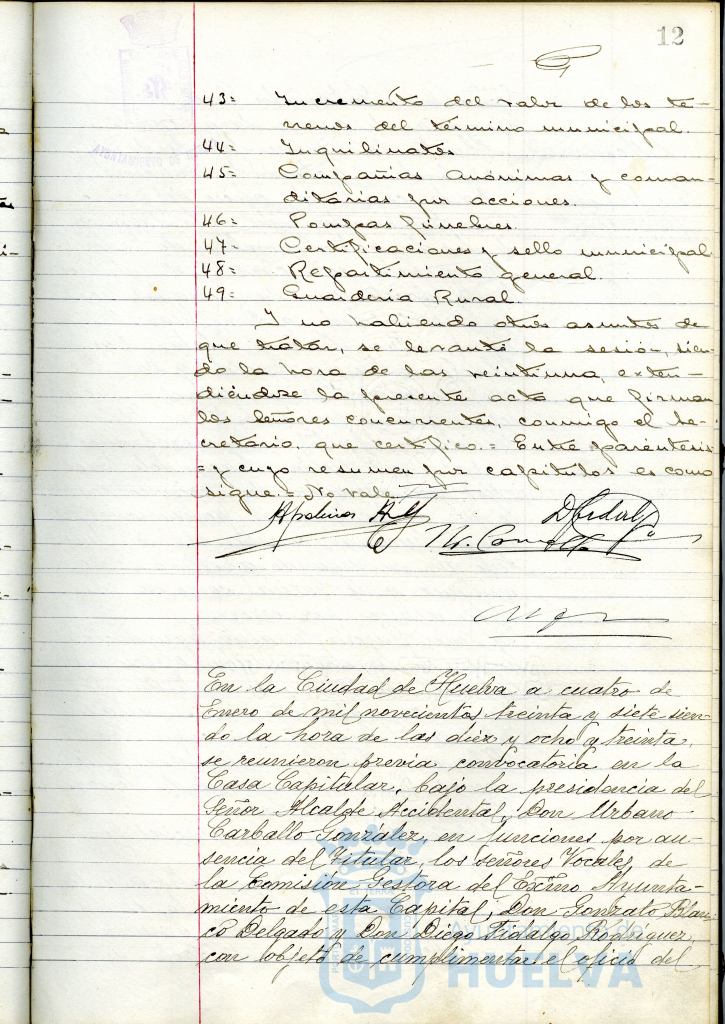 12
43= Incremento del valor de los te-
rrenos del término municipal.
44= Inquilinatos
45= Compañias anónimas y coman-
ditarias por acciones.
46= Pompas fúnebres.
47= Certificaciones y sello municipal
48= Repartimiento general.
49= Guardería Rural.
Y no habiendo otros asuntos de
que tratar, se levantó la sesión, sien-
do la hora de las veintiuna, exten-
diéndose la presente acta que firman
los señores concurrentes, conmigo el Se-
cretario, que certifico.= Entre paréntesis
=y cuyo resumen por capítulos es como
sigue.= No vale
En la Ciudad de Huelva a cuatro de
Enero de mil novecientos treinta y siete sien-
do la hora de las diez y ocho y treinta,
se reunieron previa convocatoria en la
Casa Capitular, bajo la presidencia del
Señor Alcalde Accidental, Don Urbano
Carballo González, en funciones por au-
sencia del Titular, los señores Vocales de
la Comisión Gestora del Excmo Ayunta-
miento de esta Capital, Don Gonzalo Blan-
co Delgado y Don Diego Fidalgo Rodríguez,
con objeto de cumplimentar el oficio del
Ayuntamiento de
HUELVA